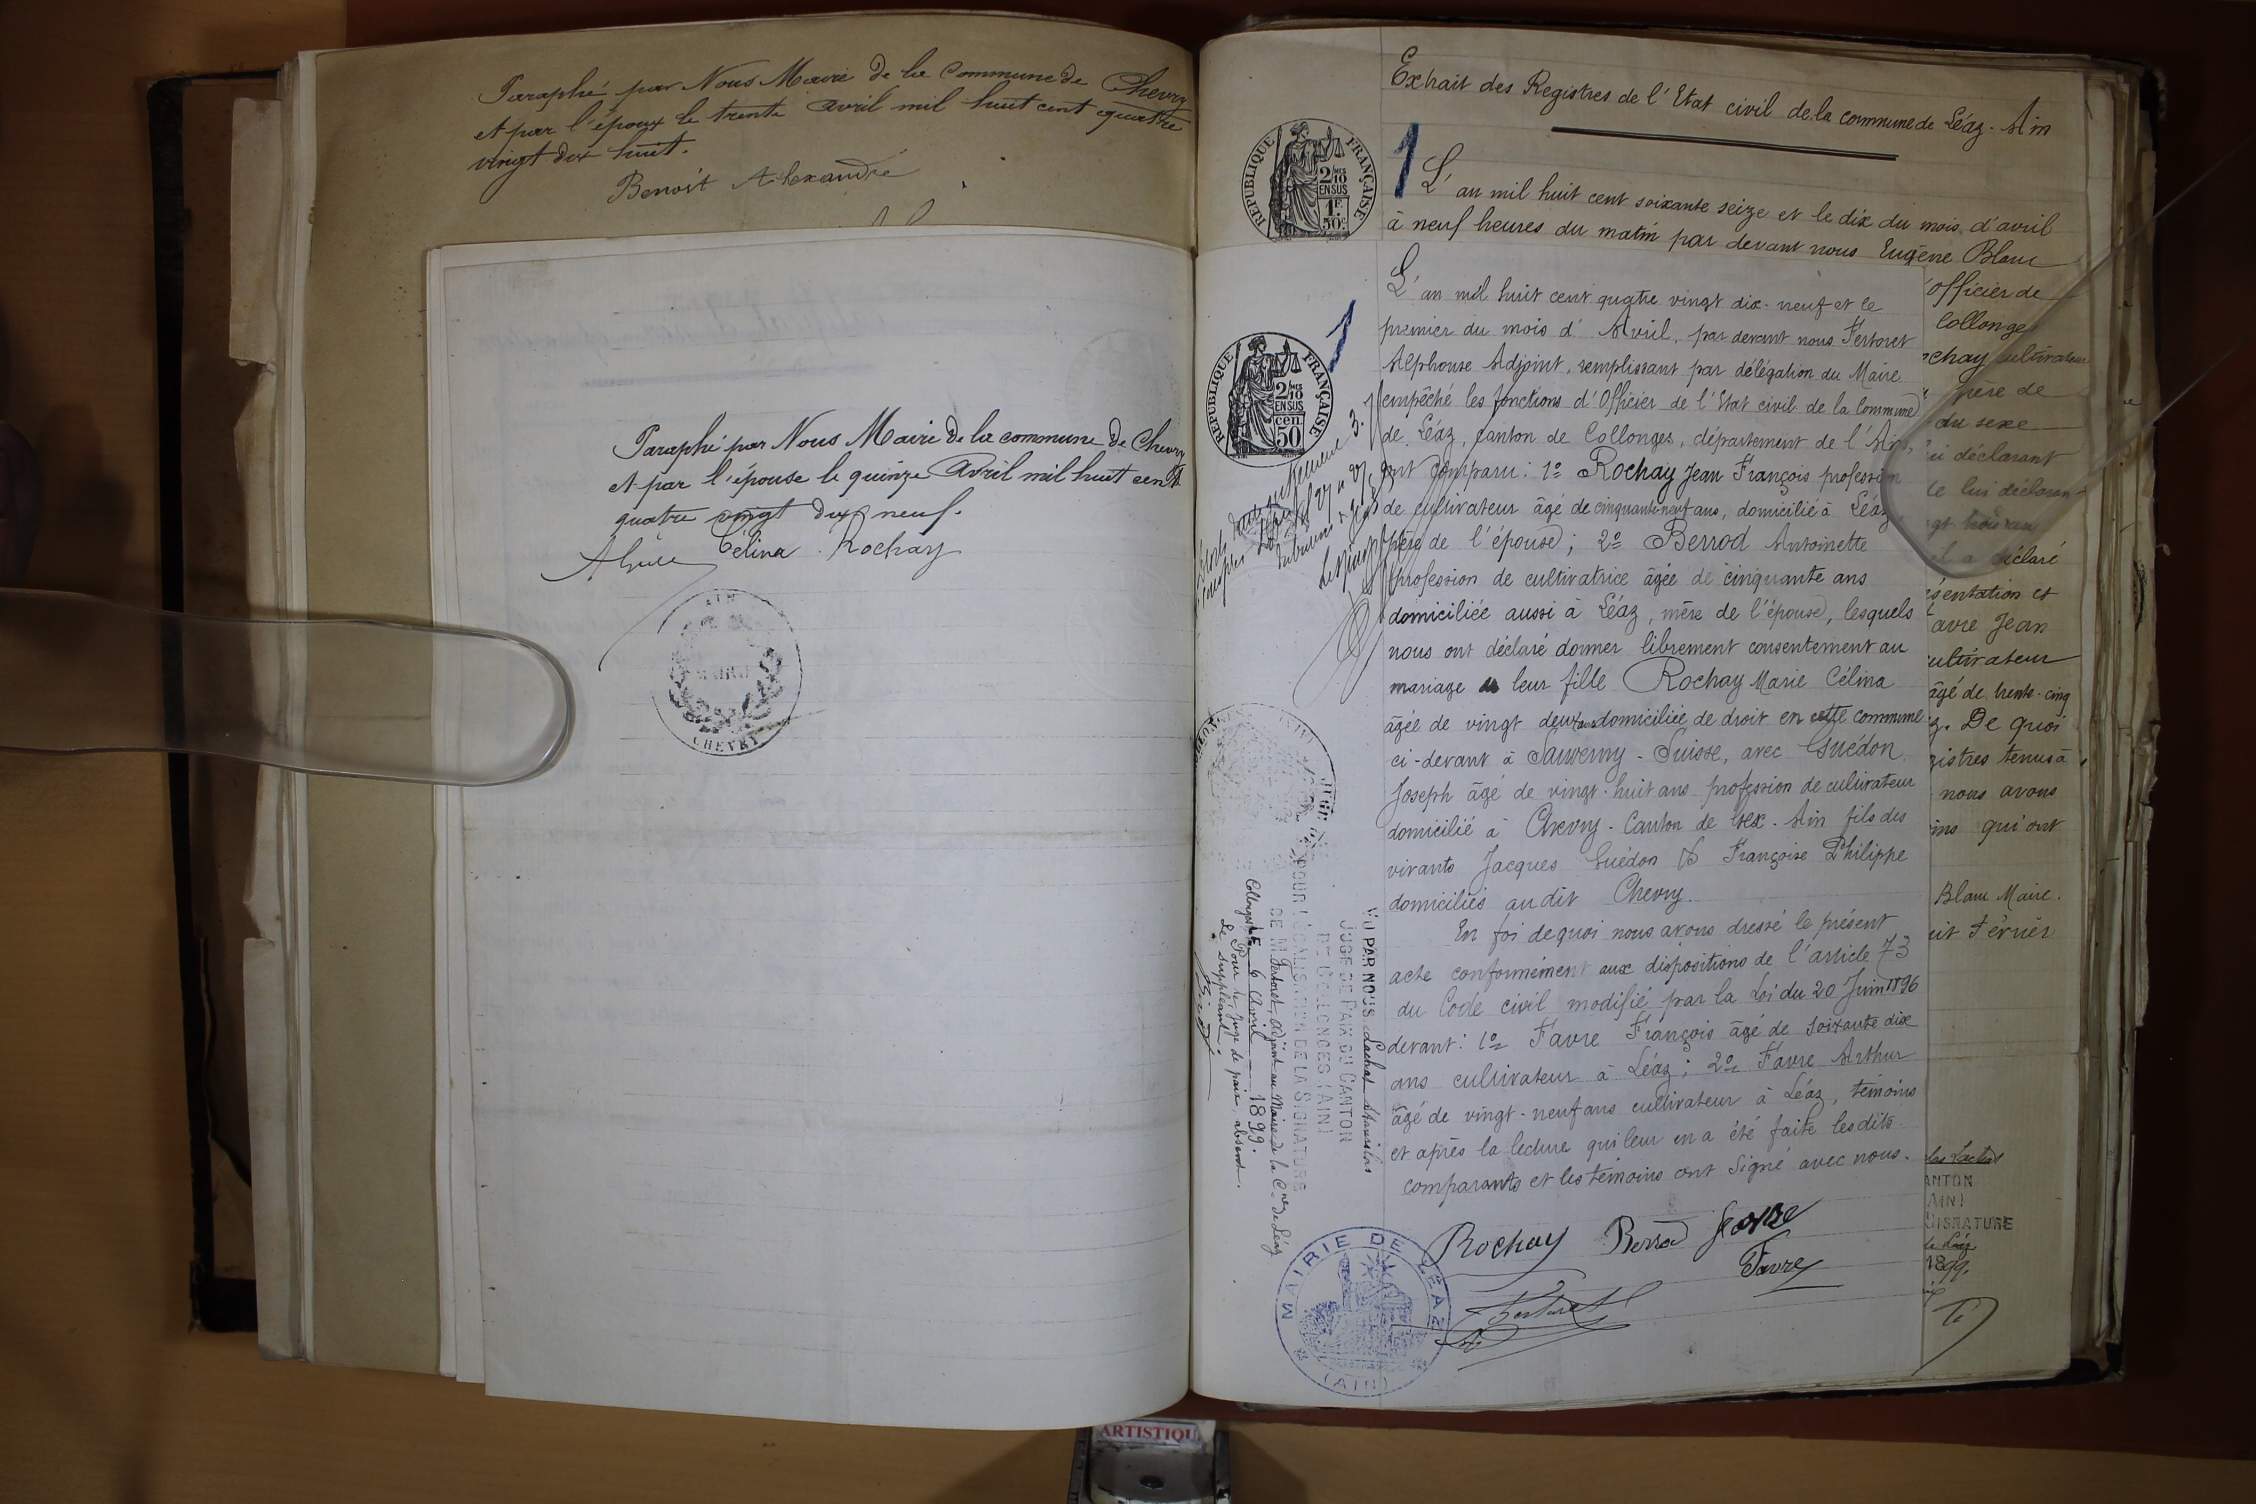 Paraphé par Nous Maire de la Commune de Chevry
et par l'époux le trente Avril mil huit cent quatre
vingt dix huit.
Benoit Alexandre
Paraphé par Nous Maire de la commune de Chevry
et par l'épouse le quinze Avril mil huit cent
quatre vingt dix neuf.
Célina Rochay
AIN
MAIRIE
CHEVRY
Extrait des Registres de l'Etat civil de la commune de Léaz - Ain
1
REPUBLIQUE FRANÇAISE
2/10 MES
EN SUS
1F
50c
L'an mil huit cent soixante seize et le dix du mois d'avril
à neuf heures du matin par devant nous Eugène Blanc
1
REPUBLIQUE FRANÇAISE
2/10 MES
EN SUS
cen.
50
L'an mil huit cent quatre vingt dix-neuf et le
premier du mois d'Avril, par devant nous Fertoret
Alphonse Adjoint, remplissant par délégation du Maire
empêché les fonctions d'Officier de l'Etat civil de la Commune
de Léaz, canton de Collonges, département de l'Ain,
ont comparu: 1º Rochay Jean François profession
de cultivateur âgé de cinquante-neuf ans, domicilié à Léaz
père de l'épouse; 2º Berrod Antoinette
profession de cultivatrice âgée de cinquante ans
domiciliée aussi à Léaz, mère de l'épouse, lesquels
nous ont déclaré donner librement consentement au
mariage de leur fille Rochay Marie Célina
âgée de vingt deux ans domiciliée de droit en cette commune
ci-devant à Sauverny - Suisse, avec Guédon
Joseph âgé de vingt-huit ans profession de cultivateur
domicilié à Chevry - Canton de Gex - Ain fils des
vivants Jacques Guédon & Françoise Philippe
domiciliés au dit Chevry.
En foi de quoi nous avons dressé le présent
acte conformément aux dispositions de l'article 73
du Code civil modifié par la Loi du 20 Juin 1896
devant: 1º Favre François âgé de soixante dix
ans cultivateur à Léaz; 2º Favre Arthur
âgé de vingt-neuf ans cultivateur à Léaz, témoins
et après la lecture qui leur en a été faite les dits
comparants et les témoins ont signé avec nous.
Rochay Berrod
Favre
Fertoret
MAIRIE DE LÉAZ
(AIN)
VU PAR NOUS Lachat Stanislas
JUGE DE PAIX DU CANTON
DE COLLONGES (AIN)
POUR LÉGALISATION DE LA SIGNATURE
DE M. Fertoret, adjoint au Maire de la Cne de Léaz
Collonges LE 6 Avril 1899.
Pour le juge de paix absent.
Le suppléant:
officier de
Collonges
ochay cultivateur
père de
du sexe
déclarant
de lui déclaran-
a déclaré
ésentation et
avre Jean
ultivateur
âgé de trente-cinq
De quoi
gistres tenus à
nous avons
ins qui ont
Blanc Maire.
las Lachat
ANTON
AIN)
SIGNATURE
de Léaz
1899.
ARTISTIQU